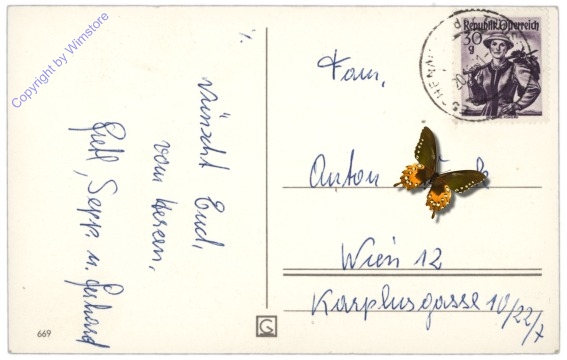 Copyright by Wimstore
%.
wünscht Euch
vom Herzen,
Gretl, Sepp u. Gerhard
Fam.
Anton
Wien 12
Karplusgasse 10/22/7
Republik Österreich
30
g
669
G